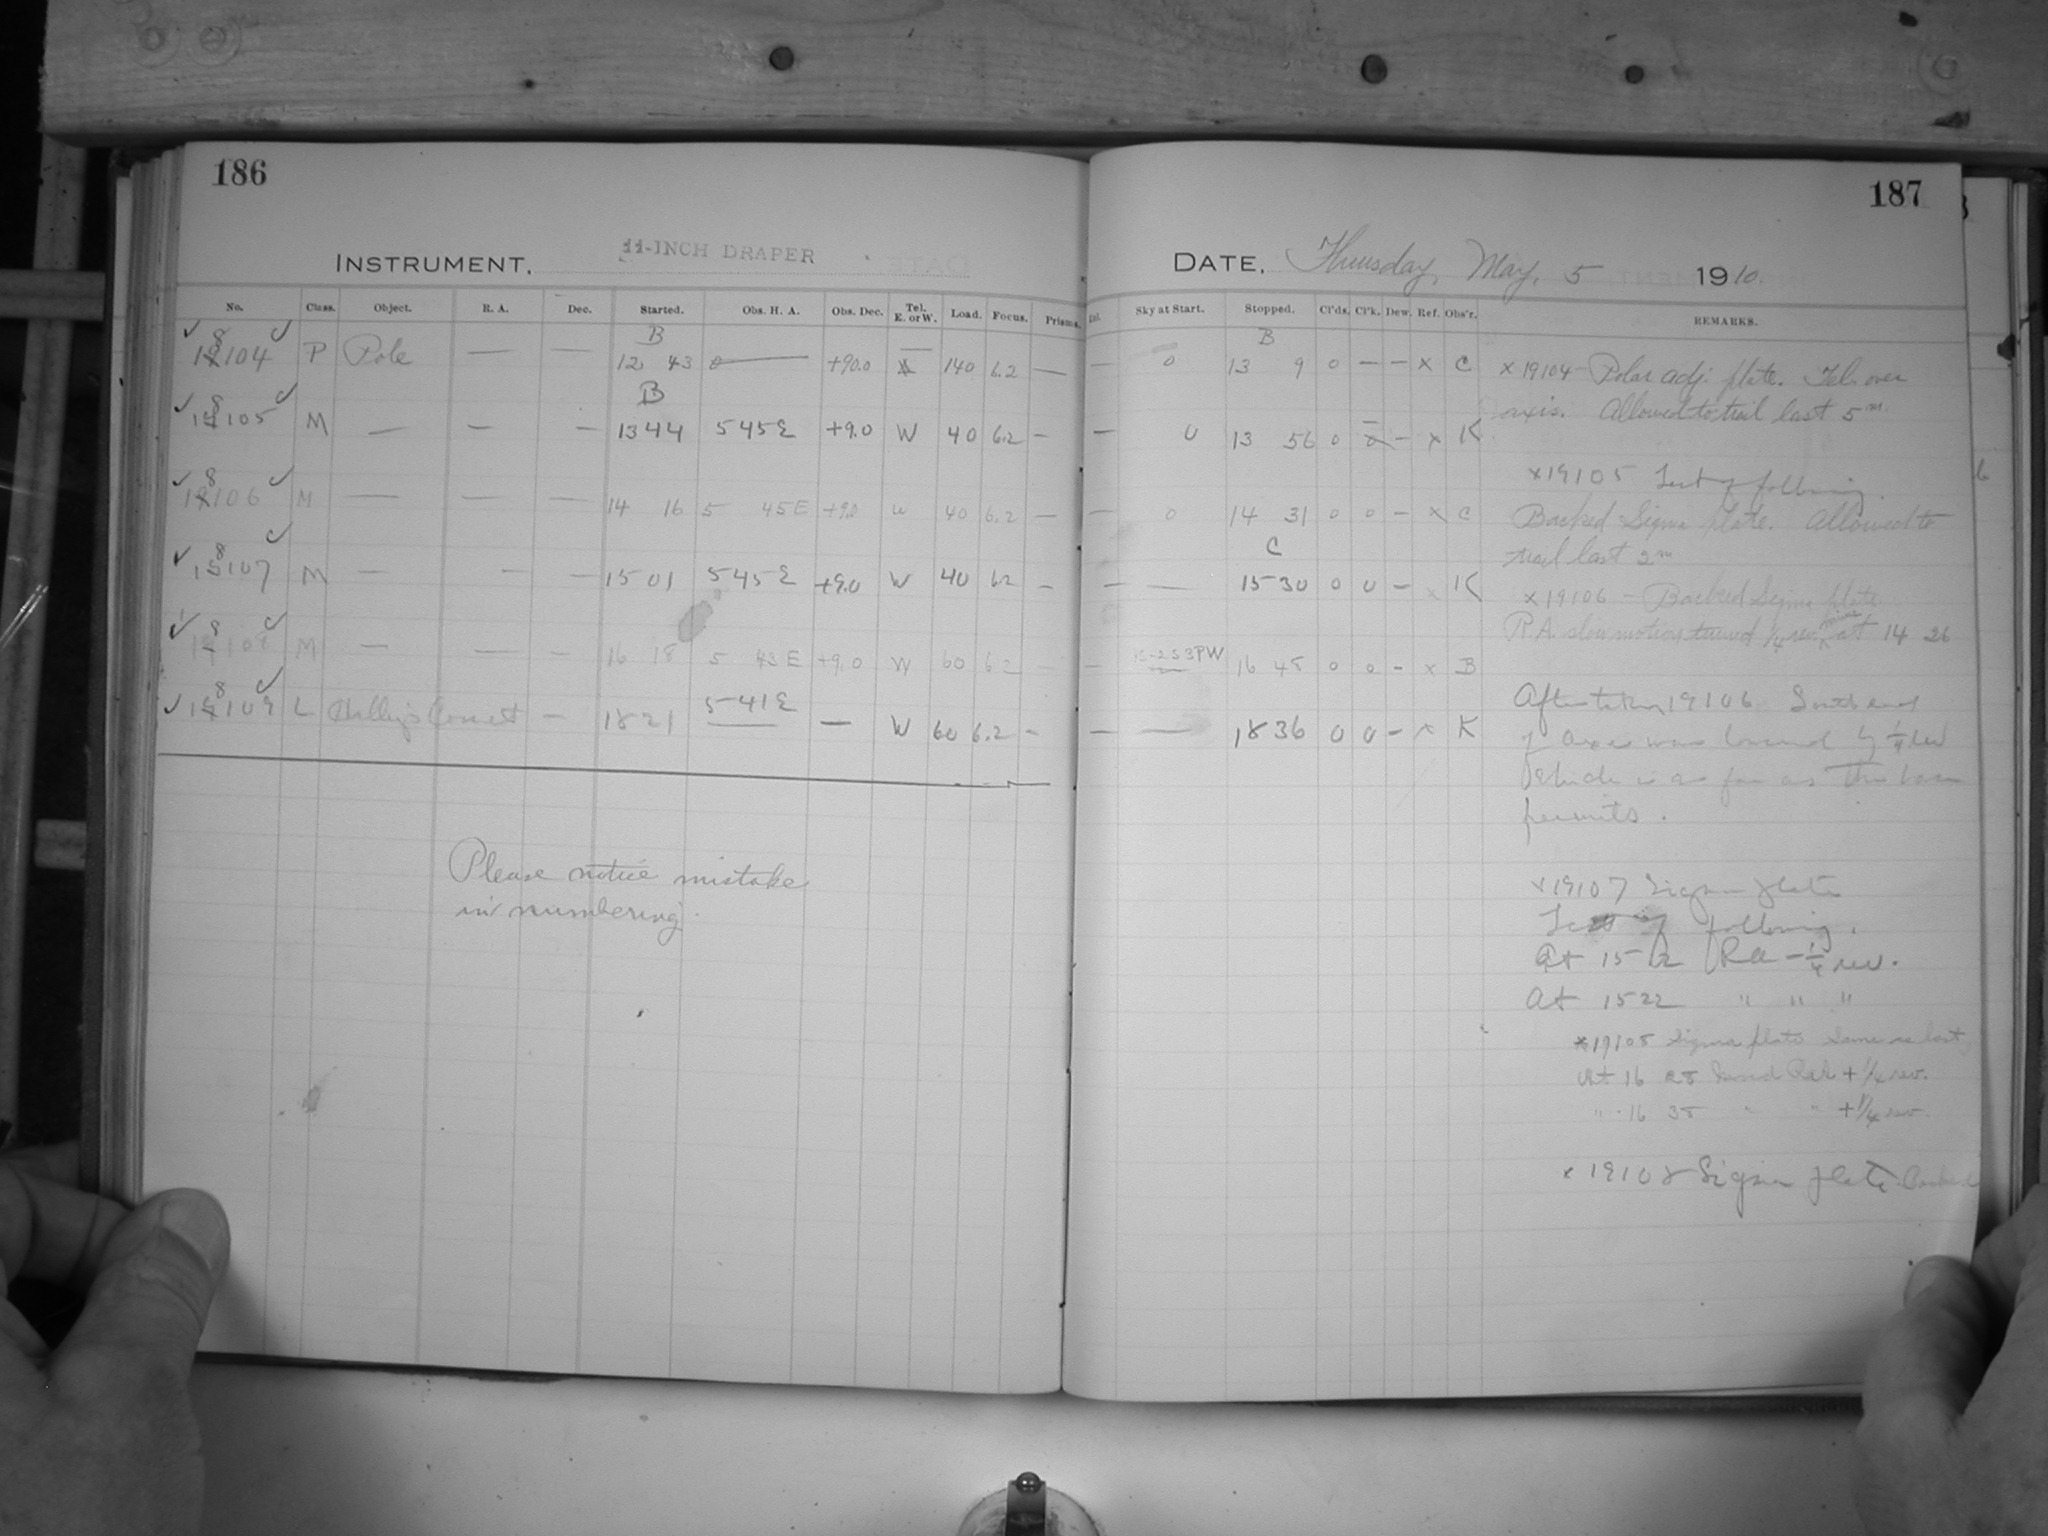 186
187
INSTRUMENT, 11-INCH DRAPER
DATE, Thursday, May, 5 1910.
No. Class. Object. R. A. Dec. Started. Obs. H. A. Obs. Dec. Tel. E. or W. Load. Focus. Prisms. Sky at Start. Stopped. Cl'ds. Cl'k. Dew. Ref. Obs'r. REMARKS.
B B
18104 P Pole — — 12 43 0 +90.0 140 6.2 — — 0 13 9 0 — — x C
B
18105 M — — — 13 44 5 45 E +9.0 W 40 6.2 — — 0 13 56 0 – x K
18106 M — — — 14 16 5 45 E +9.0 W 40 6.2 — — 0 14 31 0 0 – x C
C
18107 M — — — 15 01 5 45 E +9.0 W 40 6.2 — — — 15 30 0 0 – x K
18108 M — — — 16 18 5 43 E +9.0 W 60 6.2 — — 16 45 0 0 – x B
18109 L Halley's Comet — 18 21 5 41 E — W 60 6.2 – — — 18 36 0 0 – x K
Please notice mistake
in numbering.
x 19104 – Polar adj. plate. Tel. over
axis. Allowed to trail last 5m.
x 19105 Test of following.
Backed Sigma plate. Allowed to
trail last 2m
x 19106 – Backed Sigma plate
R.A. slow motion turned 1/4 rev. at 14 26
After taking 19106 South end
of axis was lowered by 1/4 rev
which is as far as the base
permits.
x 19107 Sigma plate
Test of following.
At 15 12 RA – 1/4 rev.
At 15 22 " " "
x 19108 Sigma plate Same as last
At 16 28 turned RA + 1/4 rev.
" 16 35 " " + 1/4 rev.
x 19108 Sigma plate Backed